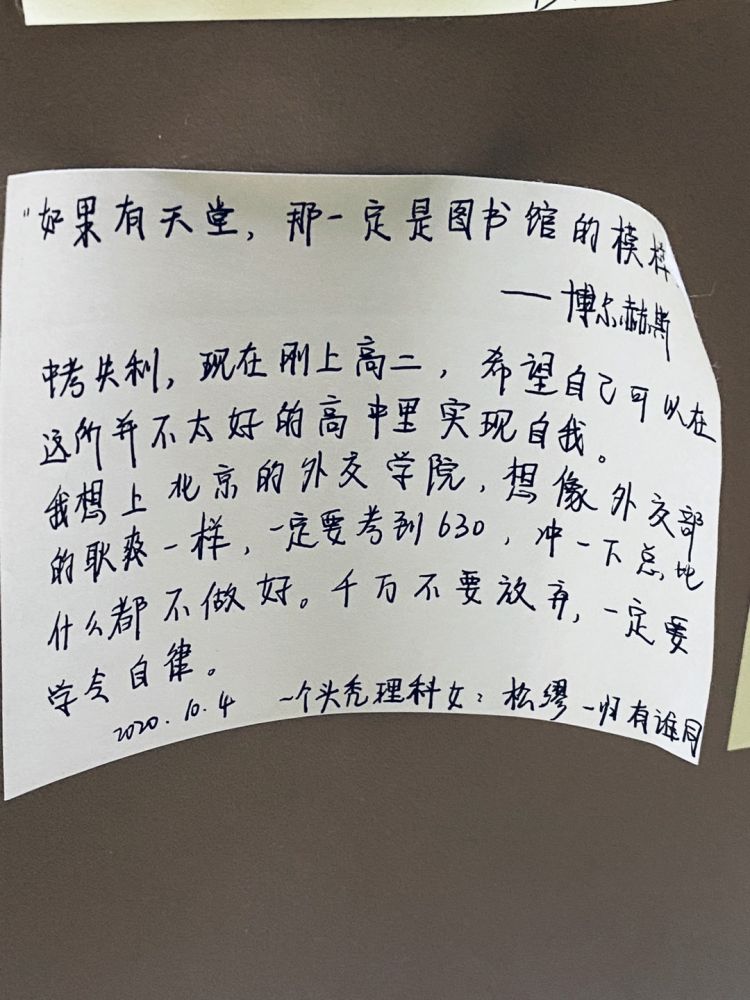 “如果有天堂，那一定是图书馆的模样
——博尔赫斯
中考失利，现在刚上高二，希望自己可以在
这所并不太好的高中里实现自我。
我想上北京的外交学院，想像外交部
的耿爽一样，一定要考到630，冲一下总比
什么都不做好。千万不要放弃，一定要
学会自律。
2020.10.4 一个头秃理科女：松缪一归有谁同